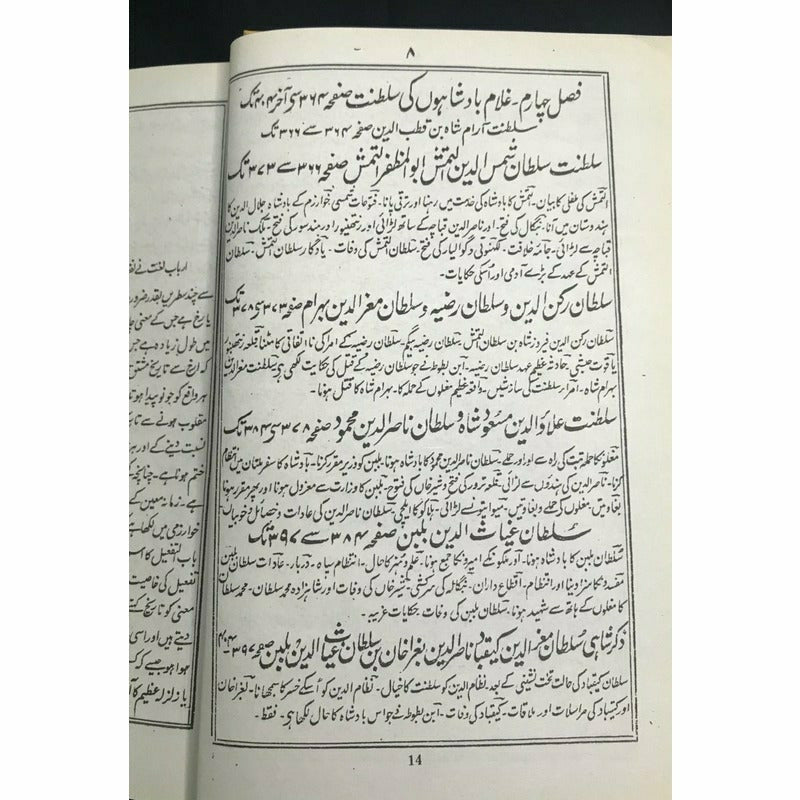 ۸
فصل چہارم - غلام بادشاہوں کی سلطنت صفحہ ۳۶۴ سی آخر ۴۰۴ تک
سلطنت آرام شاہ بن قطب الدین صفحہ ۳۶۴ سے ۳۶۶ تک
سلطنت سلطان شمس الدین التمش ابو المظفر التمش صفحہ ۳۶۶ سے ۳۷۳ تک
التمش کی طفلی کا بیان - التمش کا بادشاہ کی خدمت میں رہنا اور ترقی پانا - فتوحات شمسی خوارزم کے بادشاہ جلال الدین کا
ہندوستان میں آنا - بنگال کی فتح - اور ناصر الدین قباچہ کے ساتھ لڑائی اور رنتھنبور اور مندسور کی فتح - ملک ناصر الدین
قباچہ سے لڑائی - جامہ خلافت - لکھنوتی و گوالیار کی فتح - سلطان التمش کی وفات - یادگار سلطان التمش - سلطان
التمش کے عہد کے بڑے آدمی اور اُسکی حکایات -
سلطان رکن الدین و سلطان رضیہ و سلطان معز الدین بہرام صفحہ ۳۷۳ سی ۳۷۸ تک
سلطان رکن الدین فیروز شاہ بن سلطان التمش - سلطان رضیہ بیگم - سلطان رضیہ کے امرا کی نا اتفاقی کا مٹنا قلعہ رنتھنبور
یاقوت حبشی - حادثہ عظیم عہد سلطان رضیہ - ابن بطوطہ نے جو سلطان رضیہ کے قتل کی حکایت لکھی ہے سلطنت معز الدین
بہرام شاہ - امراء سلطنت کی سازشیں - واقعہ عظیم مغلوں کے حملہ کا - بہرام شاہ کا قتل ہونا -
سلطنت علاؤ الدین مسعود شاہ و سلطان ناصر الدین محمود صفحہ ۳۷۸ سی ۳۸۴ تک
مغلونکا حملہ تبت کی راہ سے اور اور حملے - سلطان ناصر الدین محمود کا بادشاہ ہونا - بلبن کو وزیر مقرر کرنا - بادشاہ کا سفر ملتان میں انتظام
کرنا - ناصر الدین کی ہندوؤں سے لڑائی - قلعہ نرور کی فتح و شیر خاں کی فتوح - بلبن کا وزارت سے معزول ہونا اور پھر مقرر ہونا
بغاوتیں - مغلوں کی حملے و بغاوتیں - میواتیو نسے لڑائی - ہلاکو کا ایلچی - سلطان ناصر الدین کی عادات و خصائل و خوبیاں -
سلطان غیاث الدین بلبن صفحہ ۳۸۴ سے ۳۹۷ تک
سلطان بلبن کا بادشاہ ہونا - اور ملکونکے امیرونکا جمع ہونا - علم و ہنر کا حال - انتظام سپاہ - دربار - عادات سلطان بلبن
مفسدونکا سزا دینا اور انتظام - اقطاع داران - بنگالہ کی سرکشی - شیر خاں کی وفات اور شاہزادہ محمد سلطان - محمد سلطان
کا مغلوں کے ہاتھ سے شہید ہونا - سلطان بلبن کی وفات - حکایات غریبہ -
ذکر شاہی سلطان معز الدین کیقباد ناصر الدین بغرا خان بن سلطان غیاث الدین بلبن صفحہ ۳۹۷ - ۴۰۴
سلطان کیقباد کی حالت تخت نشینی کے بعد - نظام الدین کو سلطنت کا خیال - نظام الدین کو اُسکے خسر کا سمجھانا - بغرا خان
اور کیقباد کی مراسلات اور ملاقات - کیقباد کی وفات - ابن بطوطہ نے جو اس بادشاہ کا حال لکھا ہی - فقط -
14